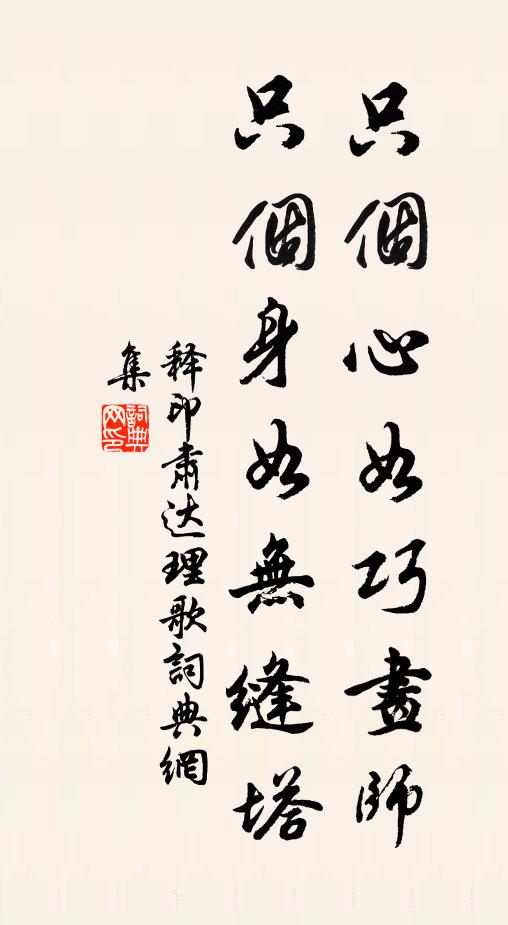 只個心如巧畫師
只個身如無縫塔
释印肅达理歌詞典網
集
詞典网印